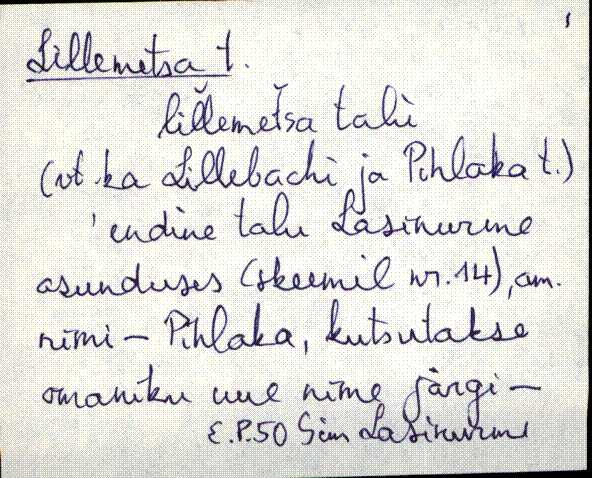 Lillemetsa t.
lil̆lemet̆sa talù
(vt. ka Lillebachi ja Pihlaka t.)
'endine talu Lasinurme
asunduses (skeemil nr. 14), am.
nimi – Pihlaka, kutsutakse
omaniku uue nime järgi –
E.P.50 Sim Lasinurme